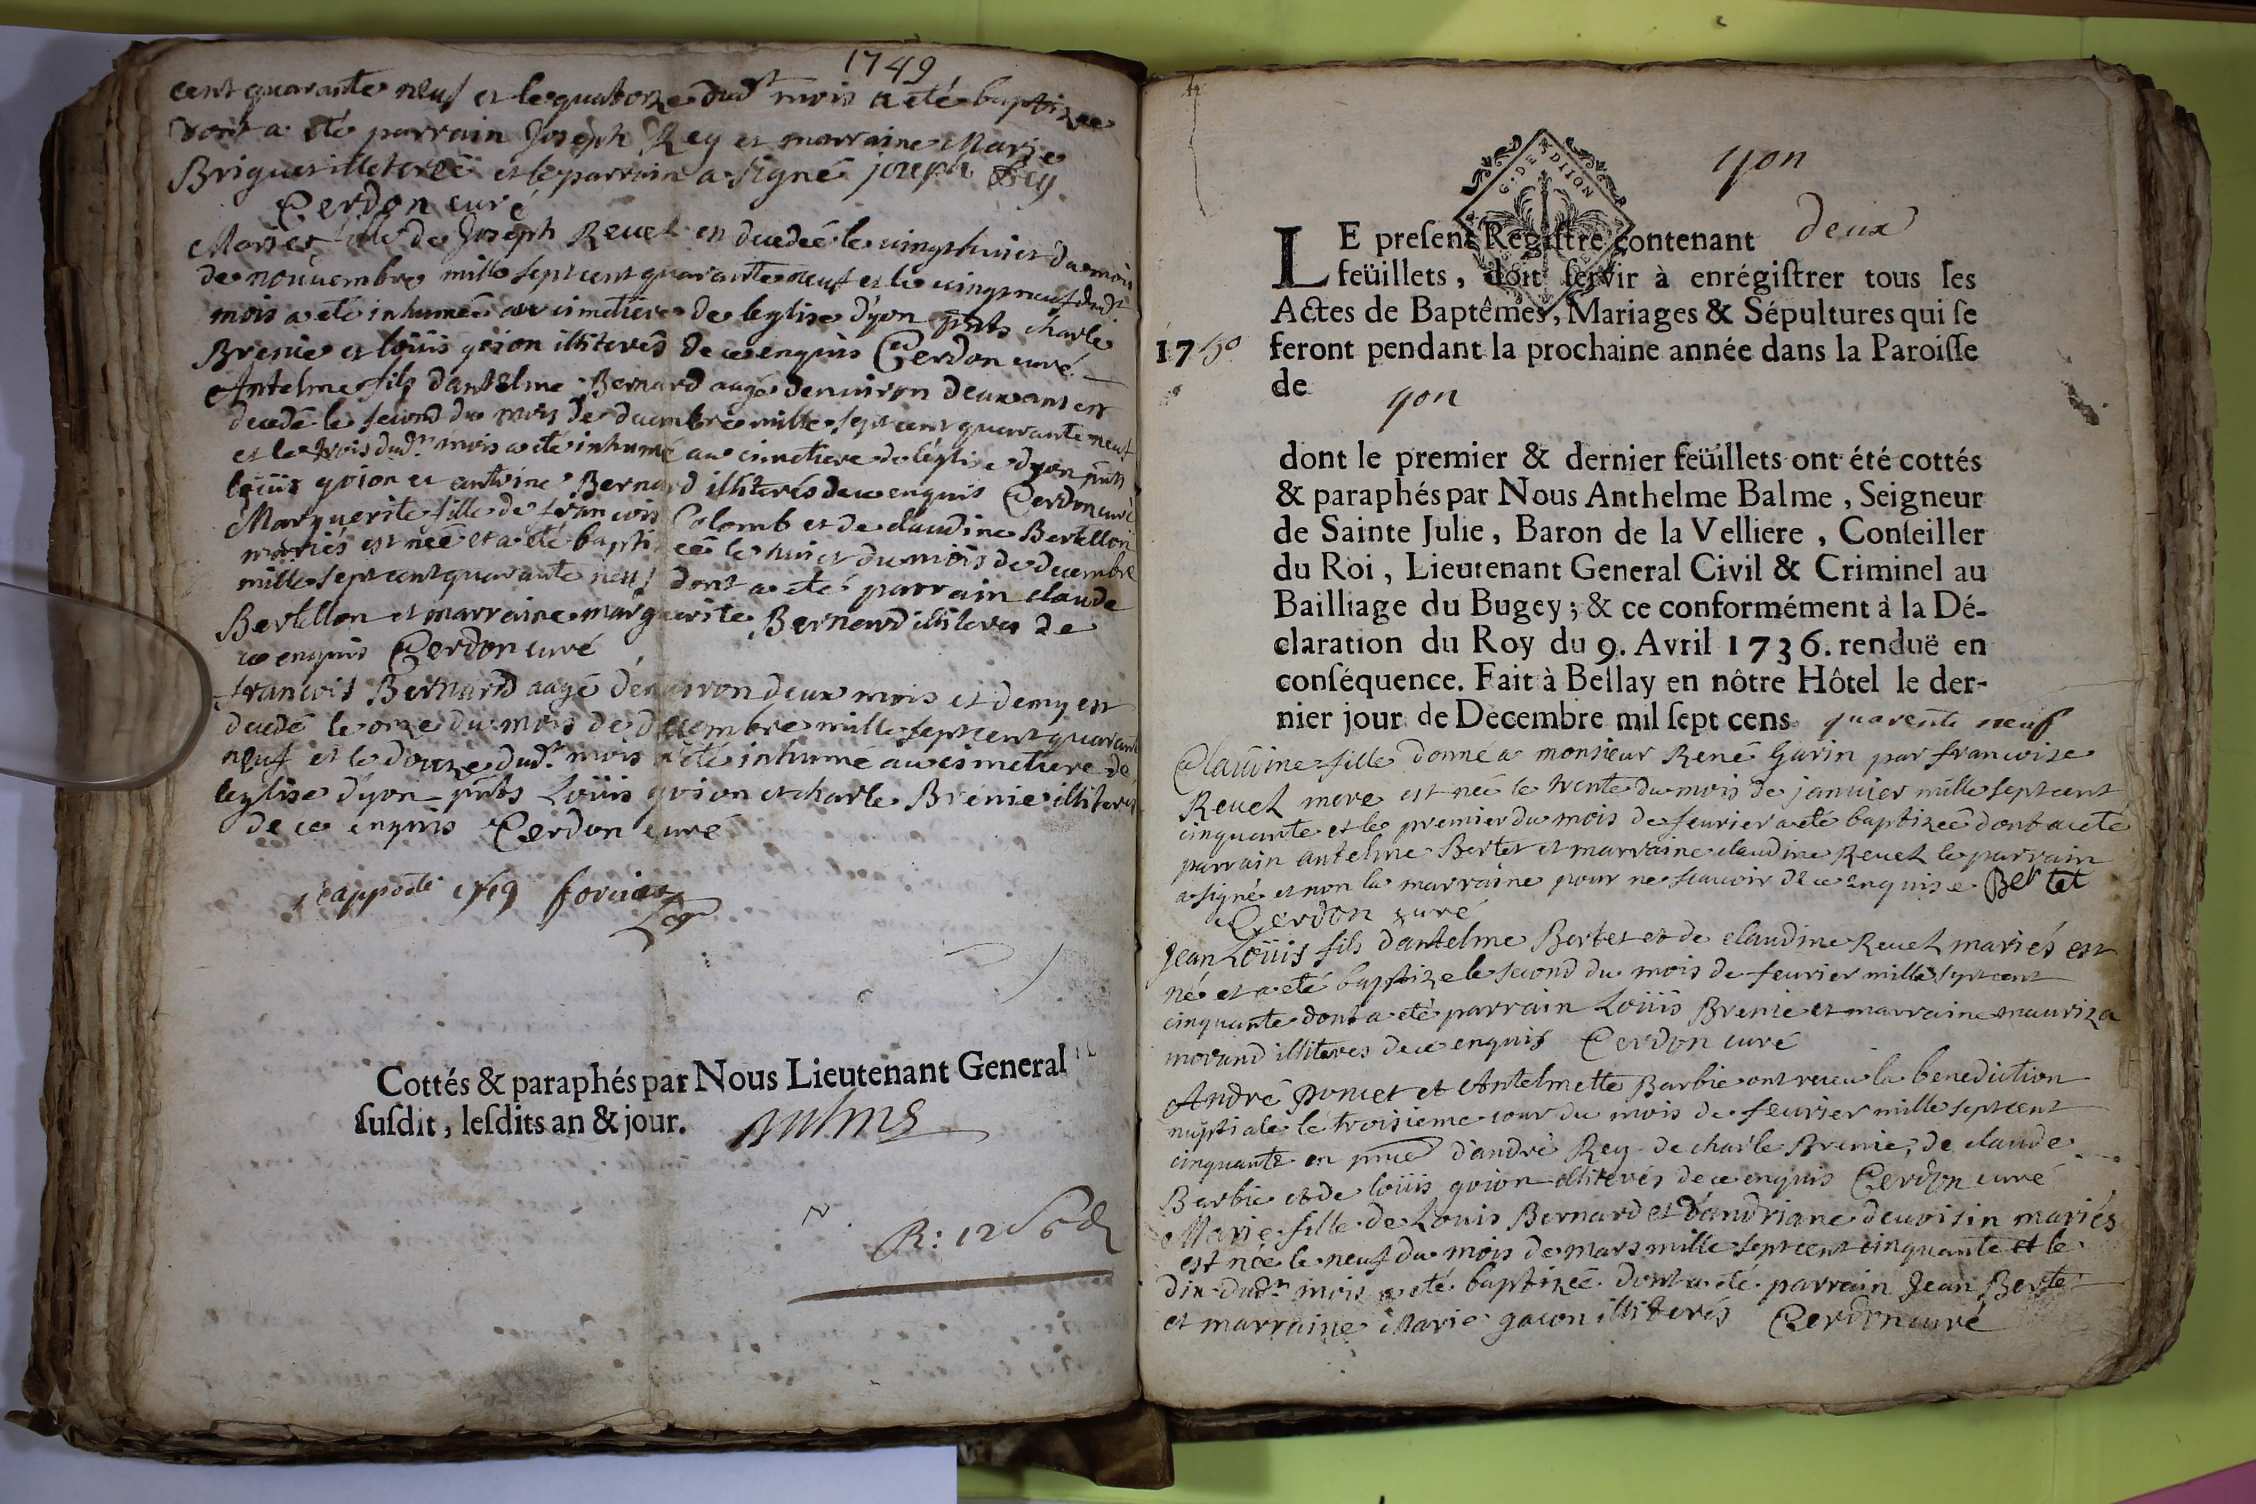 1749
cent quarante neuf et le quatorze dudt mois a été baptizée
dont a été parrain Joseph Rey et marraine Marie
Briguet illeterée et le parrain a signé joseph Rey
Cerdon curé
fille de Joseph Revel est decedeé le vingt huict du mois
de nouvembre mille sept cent quarante neuf et le vingt neuf dudt
mois a été inhumeé au cimetiere de leglise d'yon pnts charle
Brenie et loüis goion illiterés de ce enquis Cerdon curé
Antelme fils dantelme Bernard aagé denuiron deux ans est
decedé le second du mois de decembre mille sept cent quarante neuf
et le trois dudt mois a été inhumé au cimetiere de léglise dyon pnts
loüis goion et antoine Bernard illiterés de ce enquis Cerdon curé
Marguerite fille de francois Colomb et de claudine Bertellon
mariés est neé et a été baptizeé le huict du mois de decembre
mille sept cent quarante neuf dont a été parrain claude
Bertellon et marraine marguerite Bernard illiteres de
ce enquis Cerdon curé
francois Bernard aagé denuiron deux mois et demy est
decedé le onze du mois de decembre mille sept cent quarante
neuf et le douze dudt mois a été inhumé au cimetiere de
leglise d'yon pnts Loüis goion et charle Brenie illiteres
de ce enquis Cerdon curé
rapporté 1749
Cottés & paraphés par Nous Lieutenant General
ſuſdit, leſdits an & jour.
R: 12 s 6 d
G: DE DIION
yon
LE preſent Regiſtre contenant deux
feüillets, doit ſervir à enrégiſtrer tous les
Actes de Baptêmes, Mariages & Sépultures qui ſe
1750 feront pendant la prochaine année dans la Paroiſſe
de yon
dont le premier & dernier feüillets ont été cottés
& paraphés par Nous Anthelme Balme, Seigneur
de Sainte Julie, Baron de la Velliere, Conſeiller
du Roi, Lieutenant General Civil & Criminel au
Bailliage du Bugey; & ce conformément à la Dé-
claration du Roy du 9. Avril 1736. renduë en
conſéquence. Fait à Bellay en nôtre Hôtel le der-
nier jour de Decembre mil ſept cens quarente neuf
Claudine fille donné a monsieur René Garin par francoise
Revel mere est née le trente du mois de januier mille sept cent
cinquante et le premier du mois de feurier a été baptizeé dont a été
parrain antelme Bertet et marraine claudine Revel le parrain
a signé et non la marraine pour ne scauoir de ce enquise Bertet
Cerdon curé
Jean Loüis fils dantelme Bertet et de claudine Revel mariés est
né et a été baptizé le second du mois de feurier mille sept cent
cinquante dont a été parrain Loüis Brenie et marraine mauriza
morand illiteres de ce enquis Cerdon curé
André Poncet et Antelmette Barbie ont receu la benediction
nuptiale le troisieme jour du mois de feurier mille sept cent
cinquante en pnce d'andré Rey de charle Brenie, de claude
Barbie et de loüis goion illiterés de ce enquis Cerdon curé
Marie fille de Louis Bernard et dandriane deuoisin mariés
est née le neuf du mois de mars mille sept cent cinquante et le
dix dudt mois a été baptizeé dont a été parrain Jean Berte
et marraine Marie gacon illiterés Cerdon curé